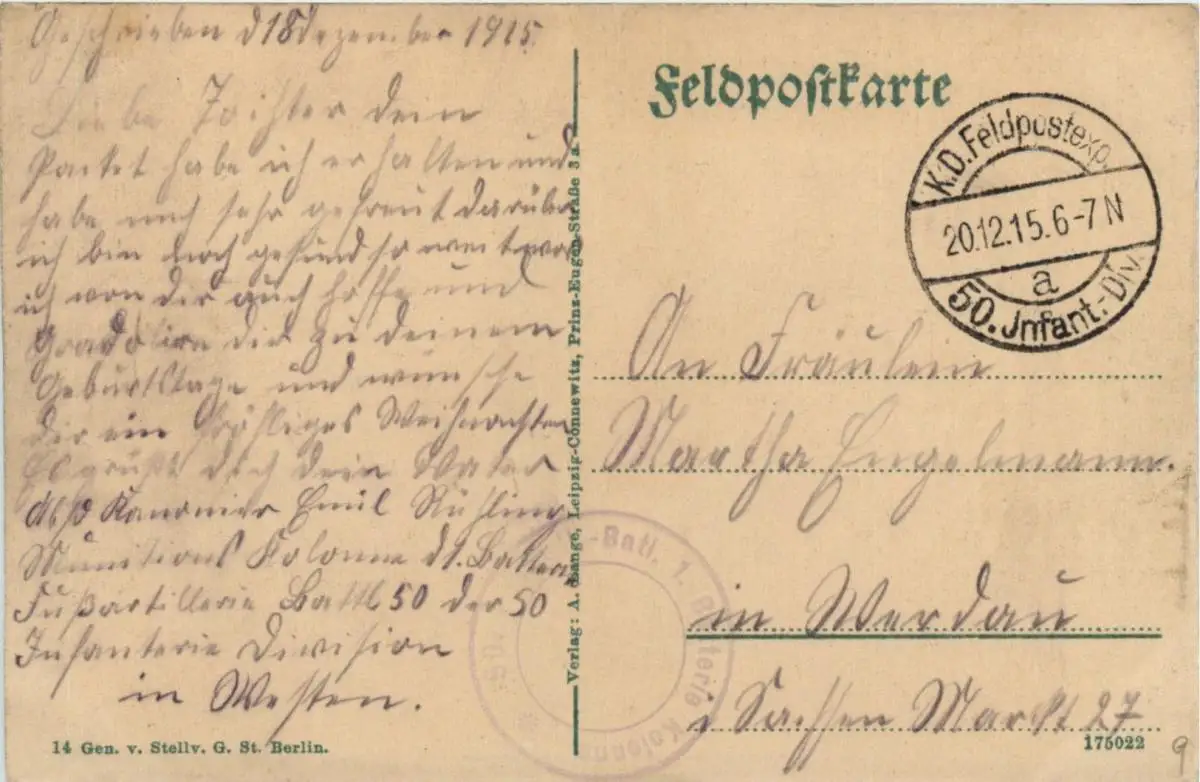 Geschrieben d 18 dezember 1915.
Liebe Tochter dein
Packet habe ich erhalten und
habe mich sehr gefreut darüber
ich bin noch gesund so weit was
ich von dir auch hoffe und
Gradolire dir zu deinem
Geburtstage und wünsche
dir ein fröhliges Weihnachten
Es grüßt dich dein Vater
Abs Kanonier Emil Rühling
Munitions Kolonne d 1. Batterie
Fußartillerie Battl 50 der 50
Infanterie Division
in Westen.
14 Gen. v. Stellv. G. St. Berlin.
Verlag: A. Gange, Leipzig-Connewitz, Prinz-Eugen-Straße 3a
Feldpostkarte
K.D. Feldpostexp.
20.12.15. 6-7 N
a
50. Jnfant.-Div.
An Fräulein
Martha Engelmann.
in Werdau
i Sachsen Markt 27
-Batl. 1. Batterie Kolonne
50.
175022
9